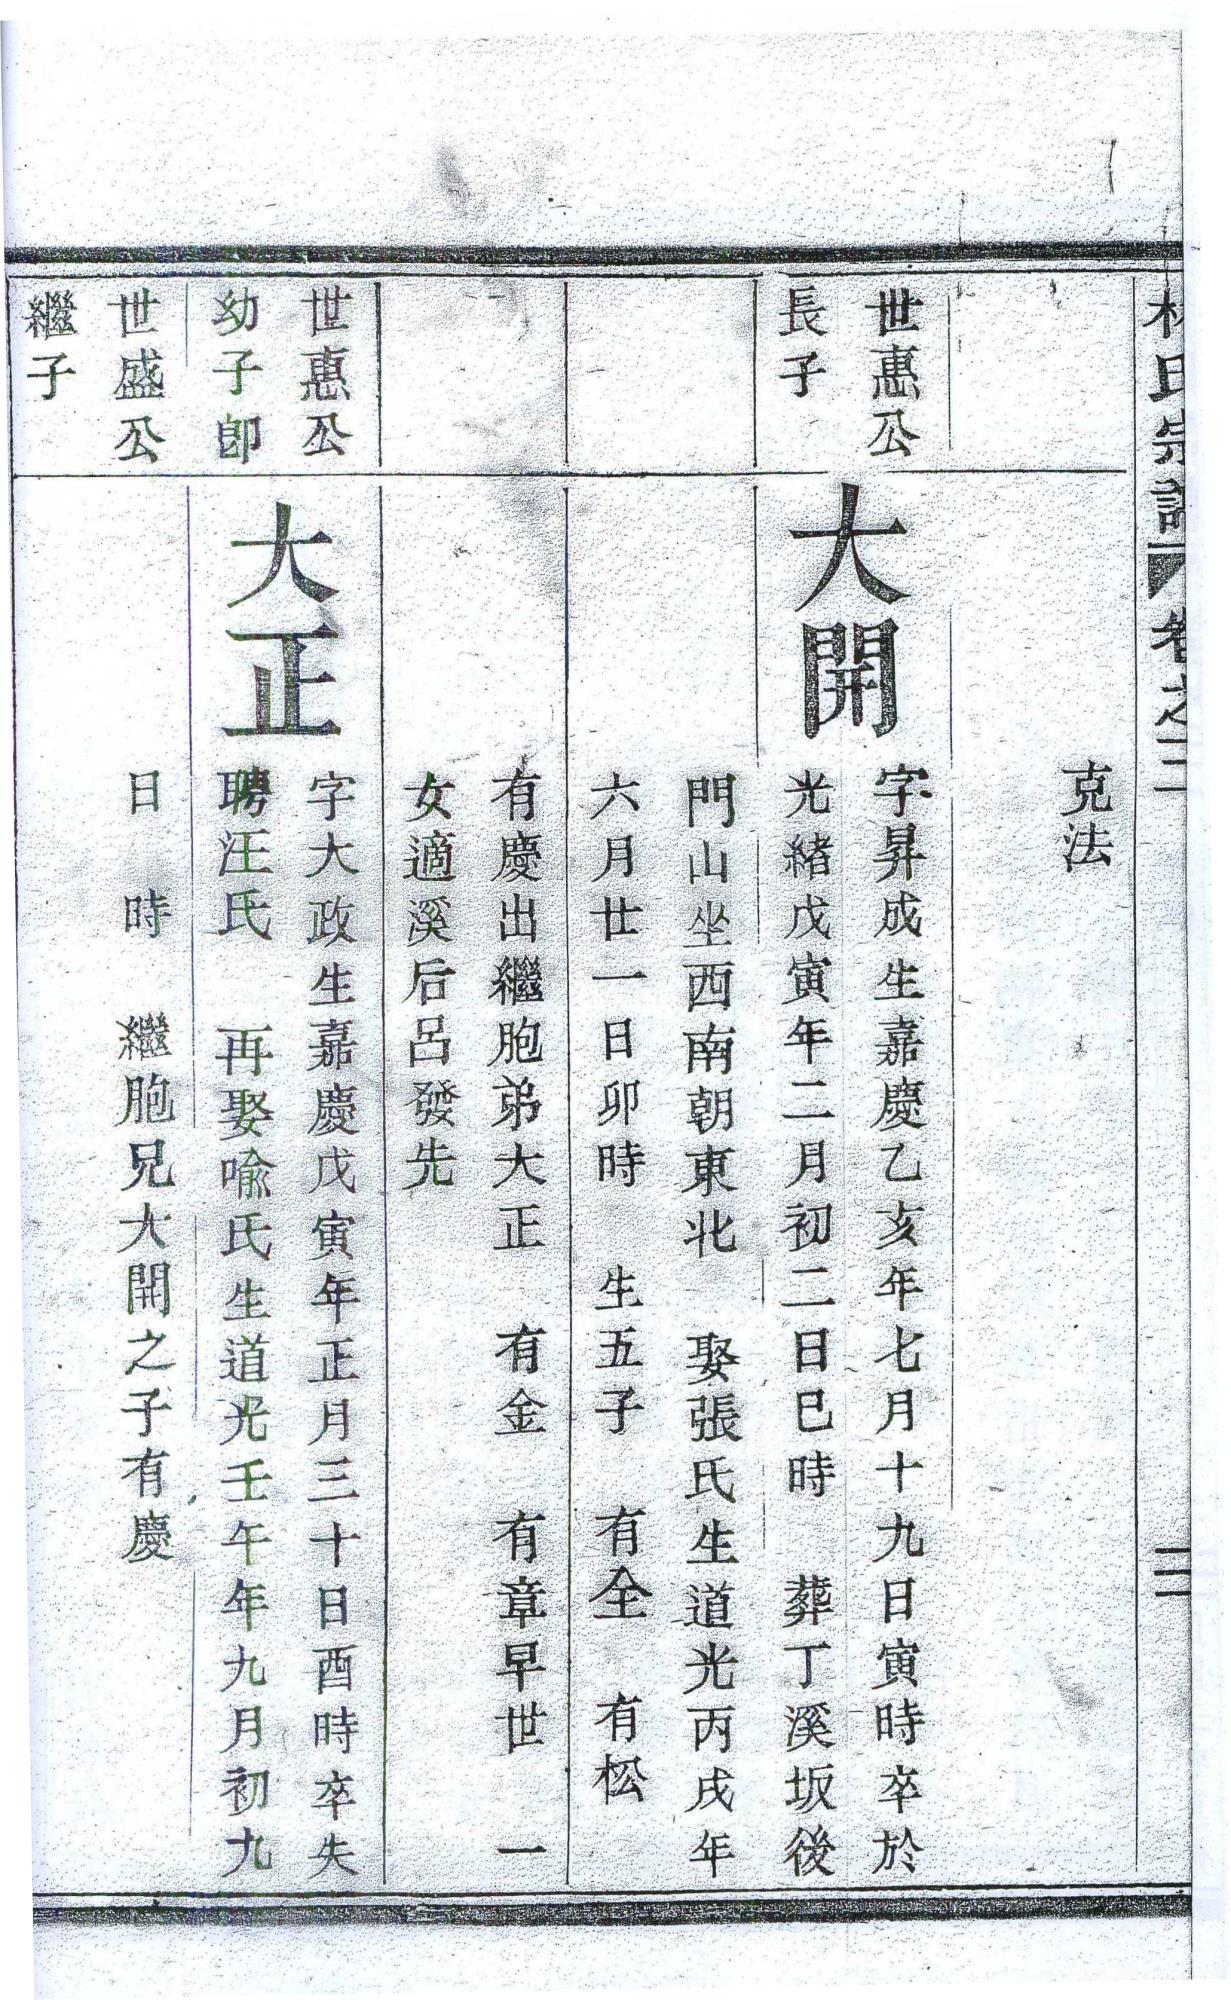 林氏宗譜 卷之二 三
克法
世惠公
長子
大開
字昇成生嘉慶乙亥年七月十九日寅時卒於
光緒戊寅年二月初二日巳時 葬丁溪坂後
門山坐西南朝東北 娶張氏生道光丙戌年
六月廿一日卯時 生五子 有全 有松
有慶出繼胞弟大正 有金 有章早世 一
女適溪后呂發先
世惠公
幼子卽
世盛公
繼子
大正
字大政生嘉慶戊寅年正月三十日酉時卒失
聘汪氏 再娶喻氏生道光壬午年九月初九
日 時 繼胞兄大開之子有慶